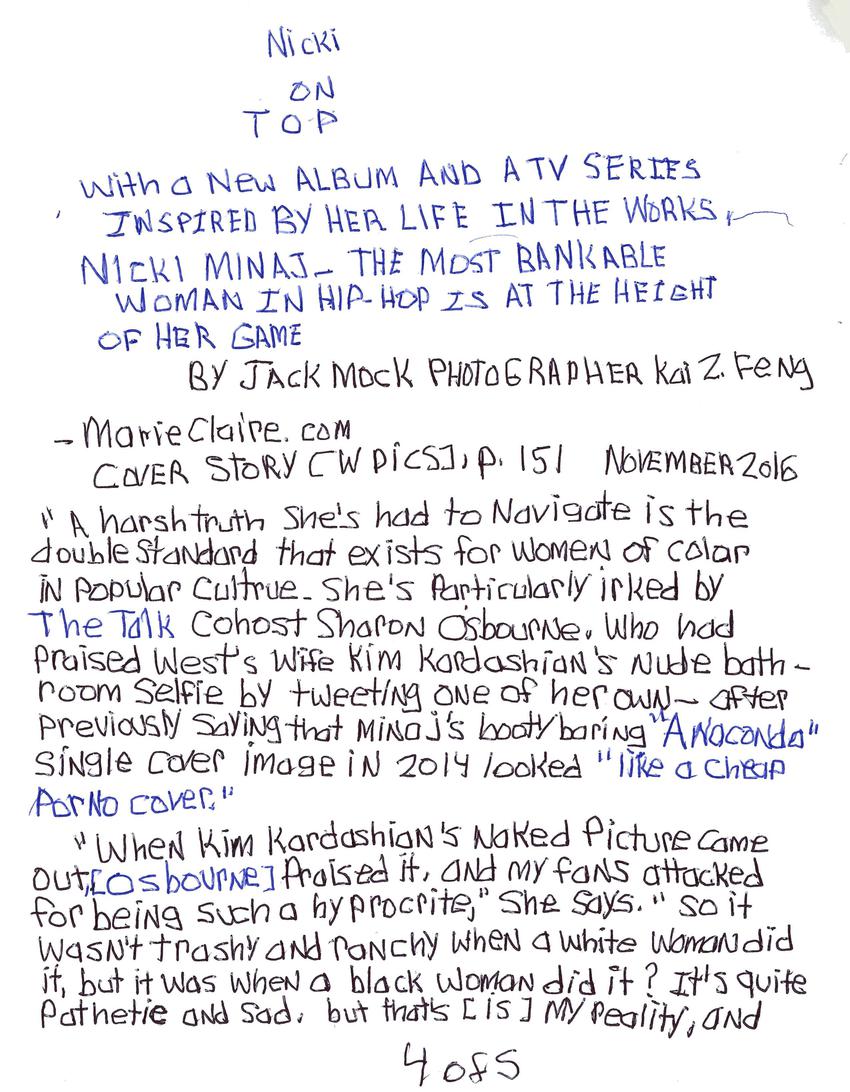 Nicki
ON
TOP
With a New ALBUM AND A TV SERIES
INSPIRED BY HER LIFE IN THE WORKS,
NICKI MINAJ- THE MOST BANKABLE
WOMAN IN HIP-HOP IS AT THE HEIGHT
OF HER GAME
BY JACK MOCK PHOTOGRAPHER Kai Z. FeNg
- MarieClaire.com
COVER STORY [W PiCS], p. 151 NOVEMBER 2016
" A harsh truth She's had to Navigate is the
double Standard that exists for WOMEN of color
iN Popular Cultrue. She's Particularly irked by
The Talk Cohost Sharon Osbourne. Who had
Praised West's Wife Kim Kardashian's Nude bath-
room Selfie by tweeting one of her own- after
previously Saying that MiNaj's booty baring "ANaconda"
SiNgle Cover image iN 2014 looked "like a Cheap
PorNo cover."
"WheN Kim Kardashian's Naked Picture Came
out,[Osbourne] Praised it, and my faNS attacked
for being Such a hyprocrite," She Says. "So it
wasn't trashy and ranchy when a white Woman did
it, but it was when a black woman did it? It's quite
Pathetie and Sad, but that's [is] My Reality, and
4 of 5